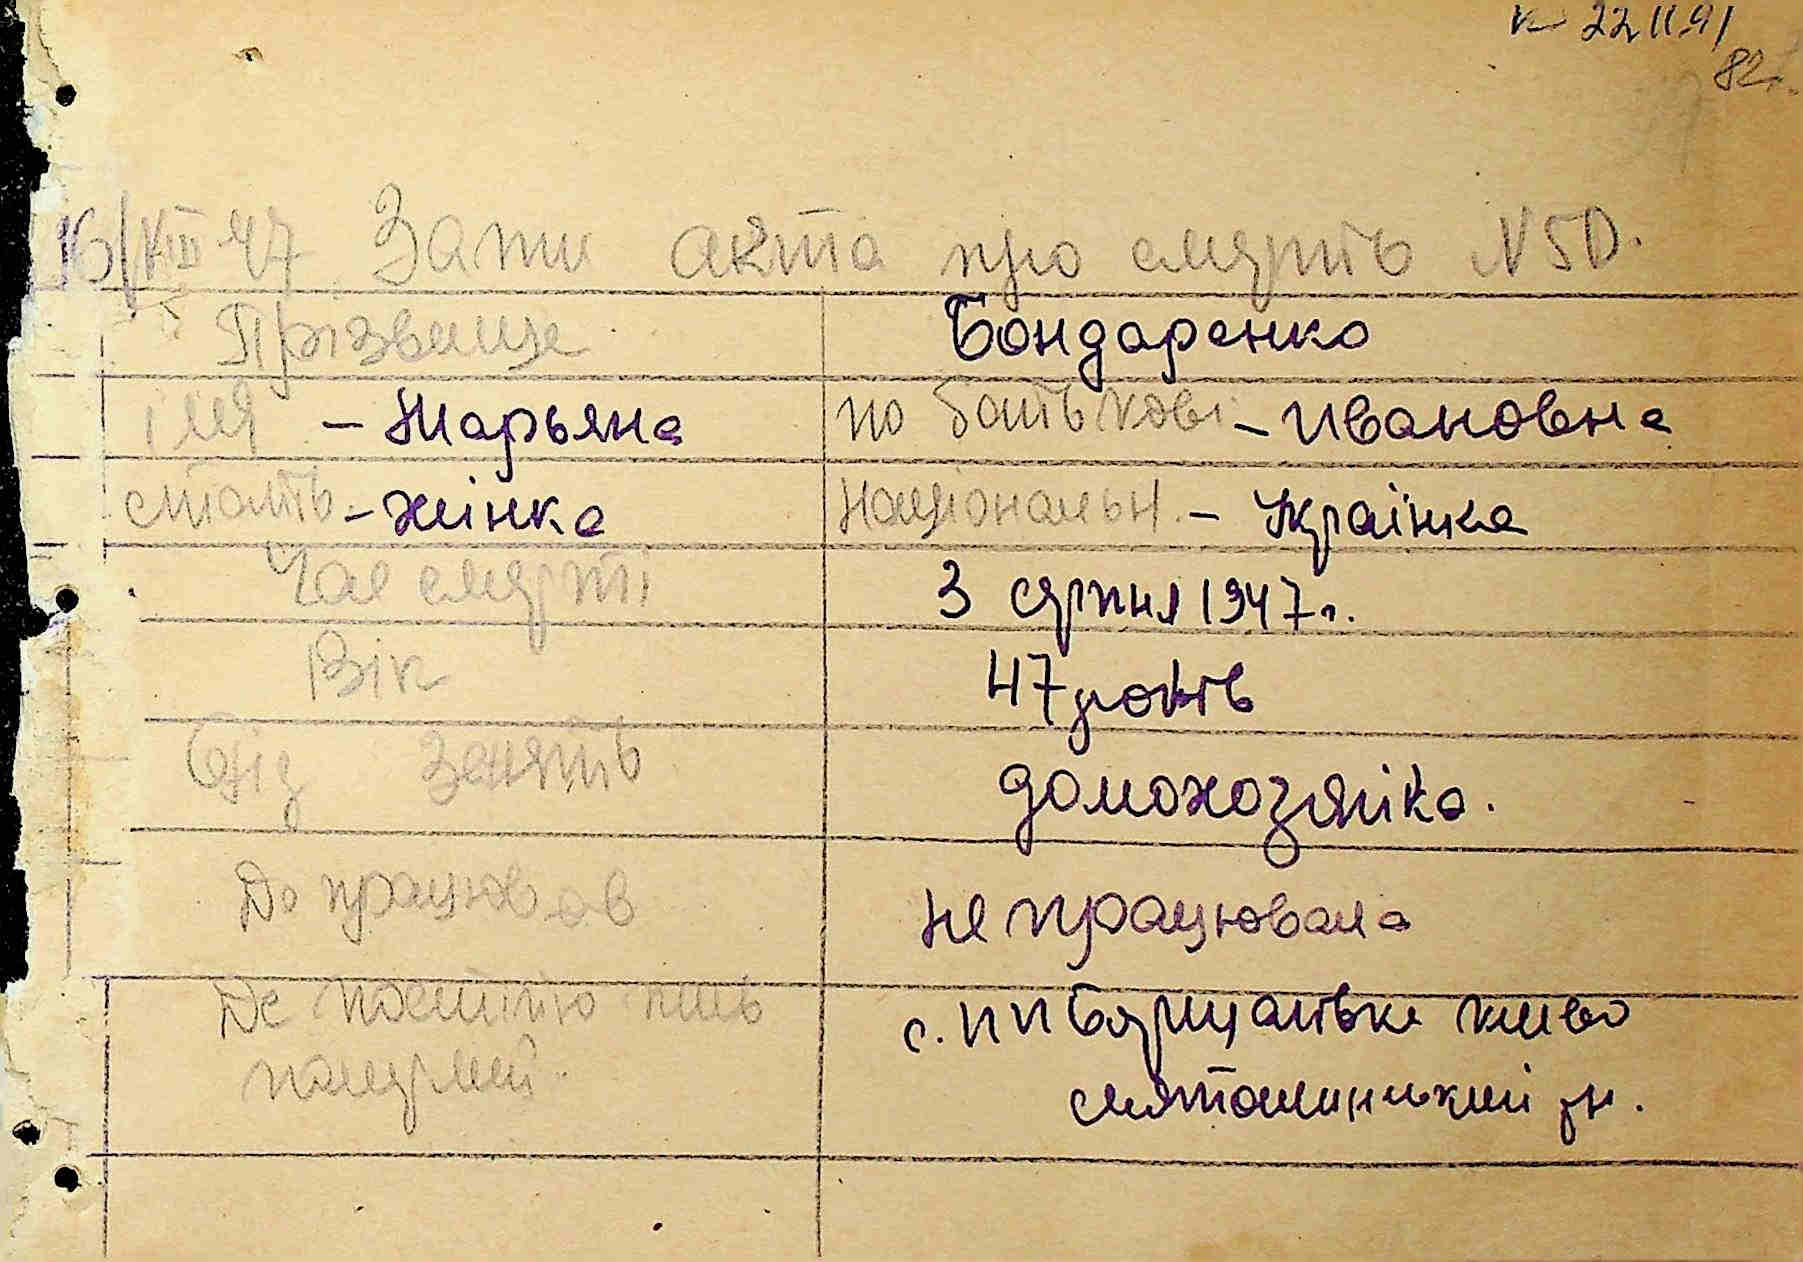 22 II 91
82
16/VIII 47 Запи акта про смерть N50.
Прізвище Бондаренко
імя - Марьяна по батькові - Ивановна
стать - жінка Національн. - Українка
Час смерті 3 серпня 1947 г.
Вік 47 років
Від занять домохозяйка.
Де працював не працювала
Де постійно жив с. ПП Борщагівка Києво
померлий Святошинський рн.